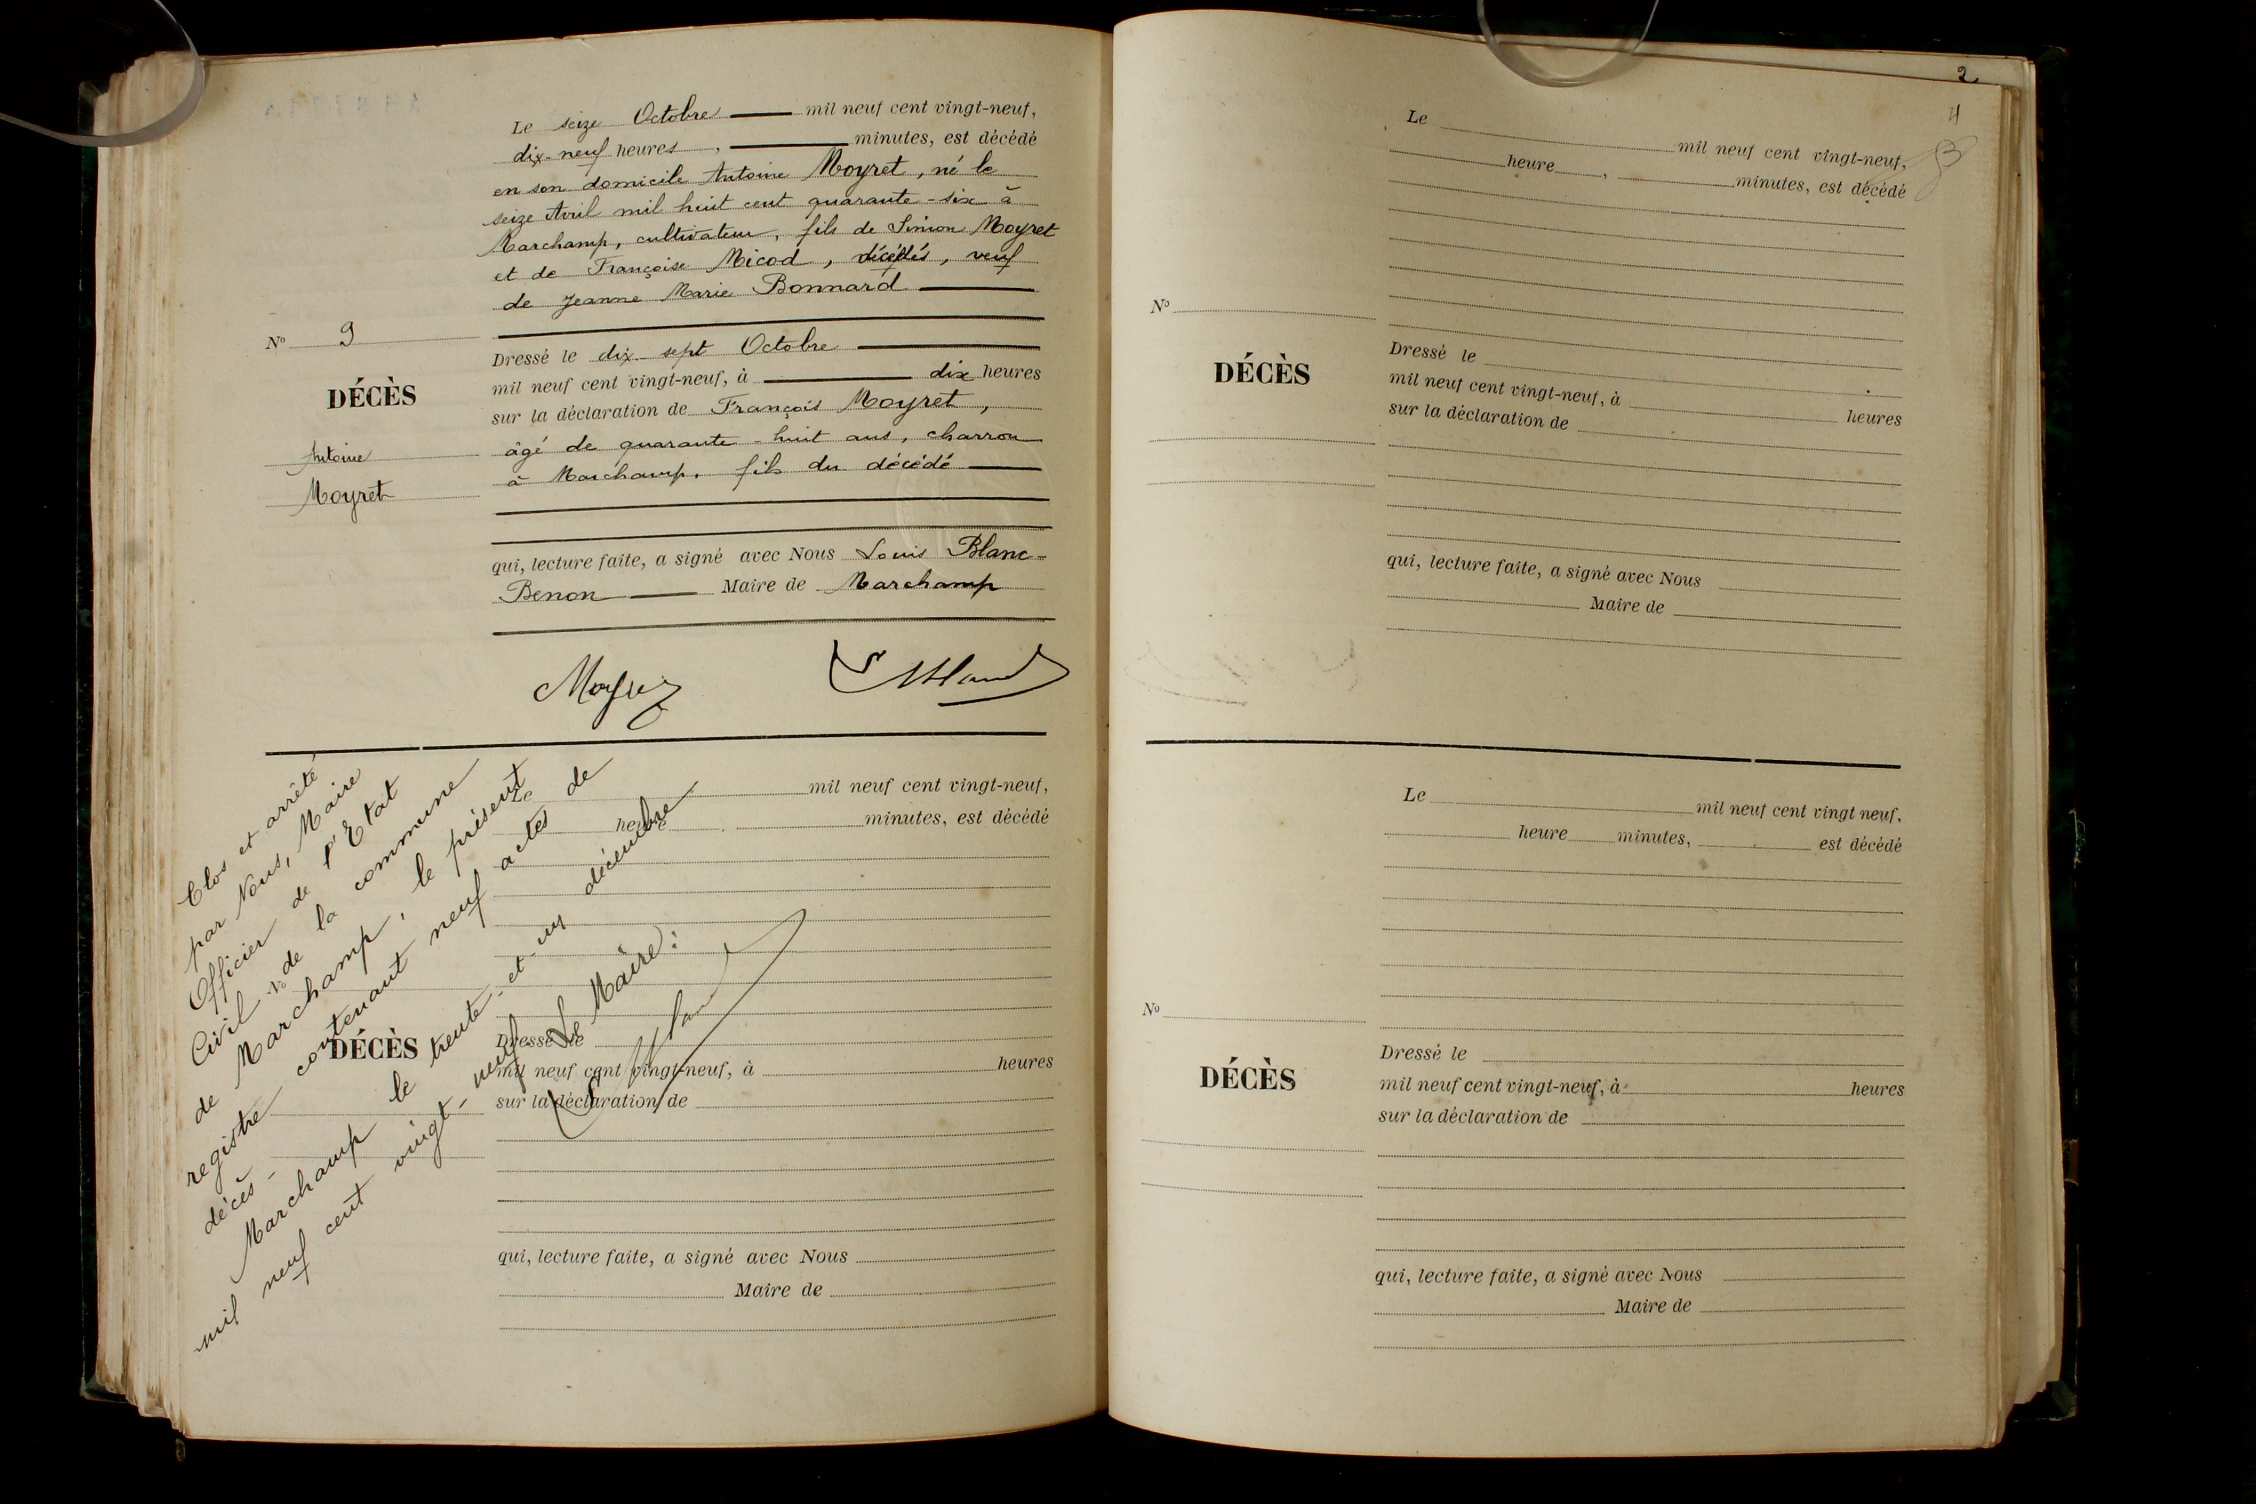 Le seize Octobre mil neuf cent vingt-neuf,
dix-neuf heures , minutes, est décédé
en son domicile Antoine Moyret, né le
seize Avril mil huit cent quarante-six à
Marchamp, cultivateur, fils de Simon Moyret
et de Françoise Micod, décédés, veuf
de Jeanne Marie Bonnard
No 9
DÉCÈS
Antoine
Moyret
Dressé le dix-sept Octobre
mil neuf cent vingt-neuf, à dix heures
sur la déclaration de François Moyret,
âgé de quarante-huit ans, charron
à Marchamp, fils du décédé
qui, lecture faite, a signé avec Nous Louis Blanc-
Benon Maire de Marchamp
Clos et arrêté
par Nous, Maire
Officier de l'Etat
Civil de la commune
de Marchamp, le présent
registre contenant neuf actes de
décès -
Marchamp le trente-et-un décembre
mil neuf cent vingt-neuf
Le Maire:
Le mil neuf cent vingt-neuf,
heure , minutes, est décédé
No
DÉCÈS
Dressé le
mil neuf cent vingt-neuf, à heures
sur la déclaration de
qui, lecture faite, a signé avec Nous
Maire de
2
4
3
Le mil neuf cent vingt-neuf,
heure , minutes, est décédé
No
DÉCÈS
Dressé le
mil neuf cent vingt-neuf, à heures
sur la déclaration de
qui, lecture faite, a signé avec Nous
Maire de
Le mil neuf cent vingt neuf,
heure minutes, est décédé
No
DÉCÈS
Dressé le
mil neuf cent vingt-neuf, à heures
sur la déclaration de
qui, lecture faite, a signé avec Nous
Maire de